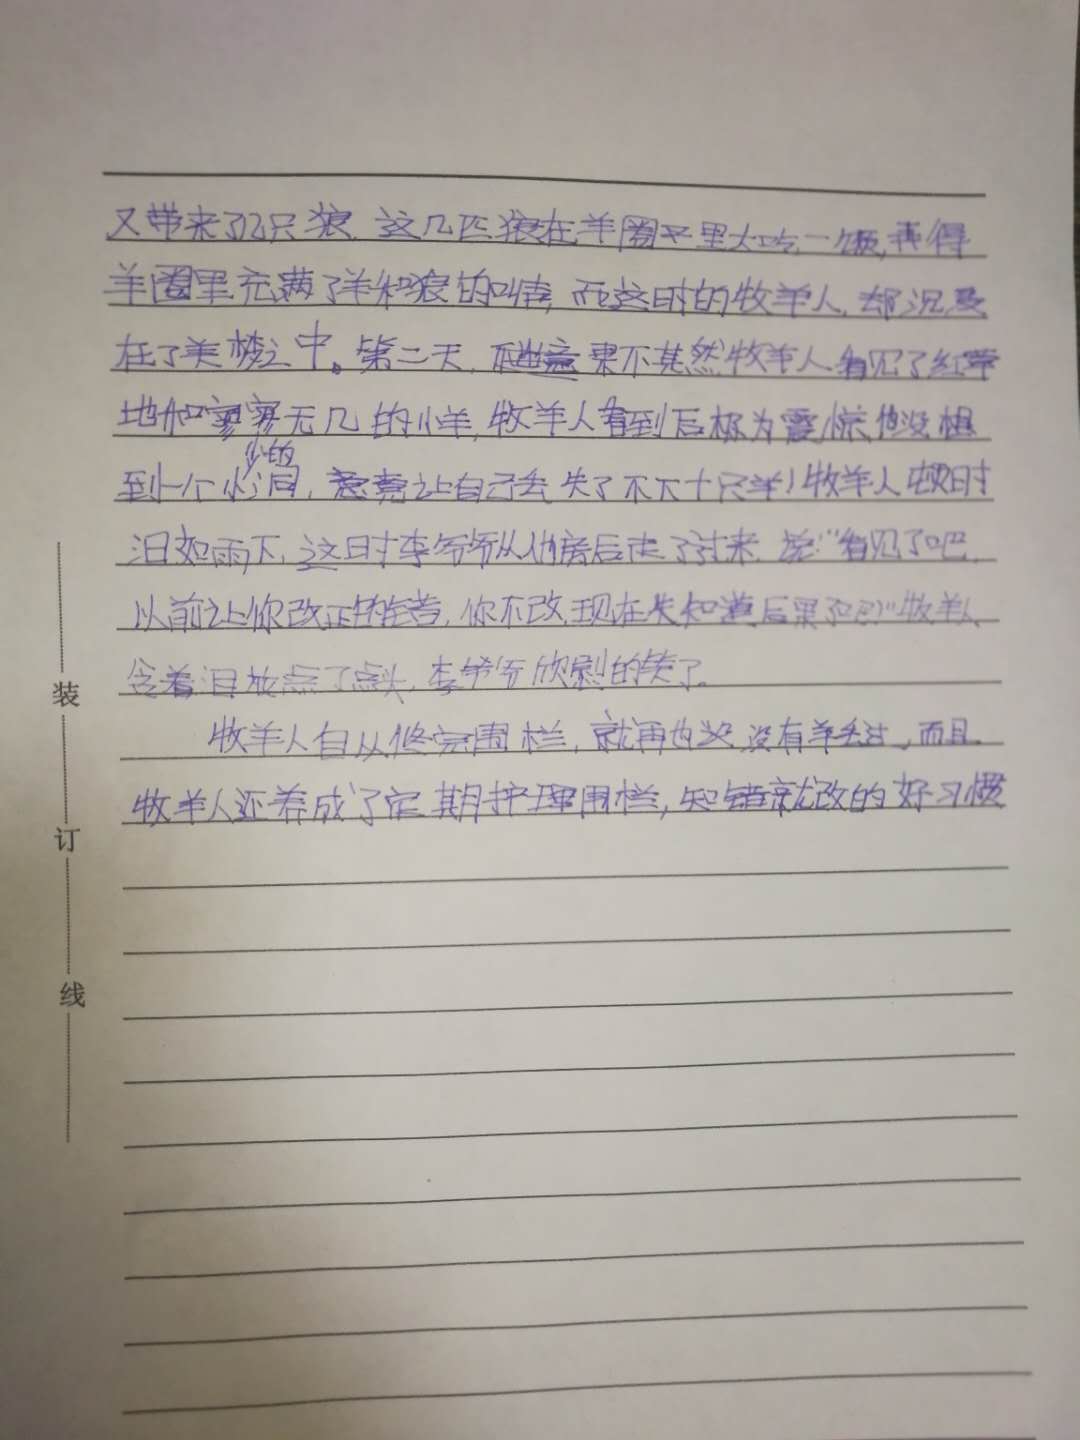 又带来了2只狼.这几匹狼在羊圈里大吃一顿,弄得
羊圈里充满了羊和狼的叫声,而这时的牧羊人,却沉浸
在了美梦之中。第二天,果不其然牧羊人看见了红
地和寥寥无几的小羊,牧羊人看到后极为震惊,他没想
到一个小小的洞,竟让自己丢失了不下十只羊!牧羊人顿时
泪如雨下,这时李爷爷从他房后走了过来,说:"看见了吧,
以前让你改正错误,你不改,现在知道后果了吧!"牧羊人
含着泪点了点头,李爷爷欣慰的笑了。
牧羊人自从修完围栏,就再也没有羊丢过,而且
牧羊人还养成了定期护理围栏,知错就改的好习惯
装
订
线